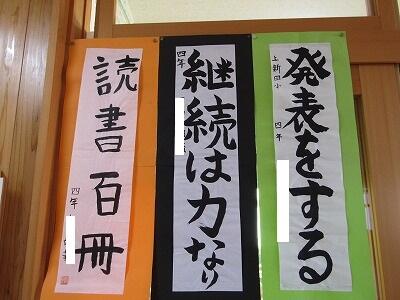 発表をする
上新田小
四年
継続は力なり
四年
読書百冊
四年